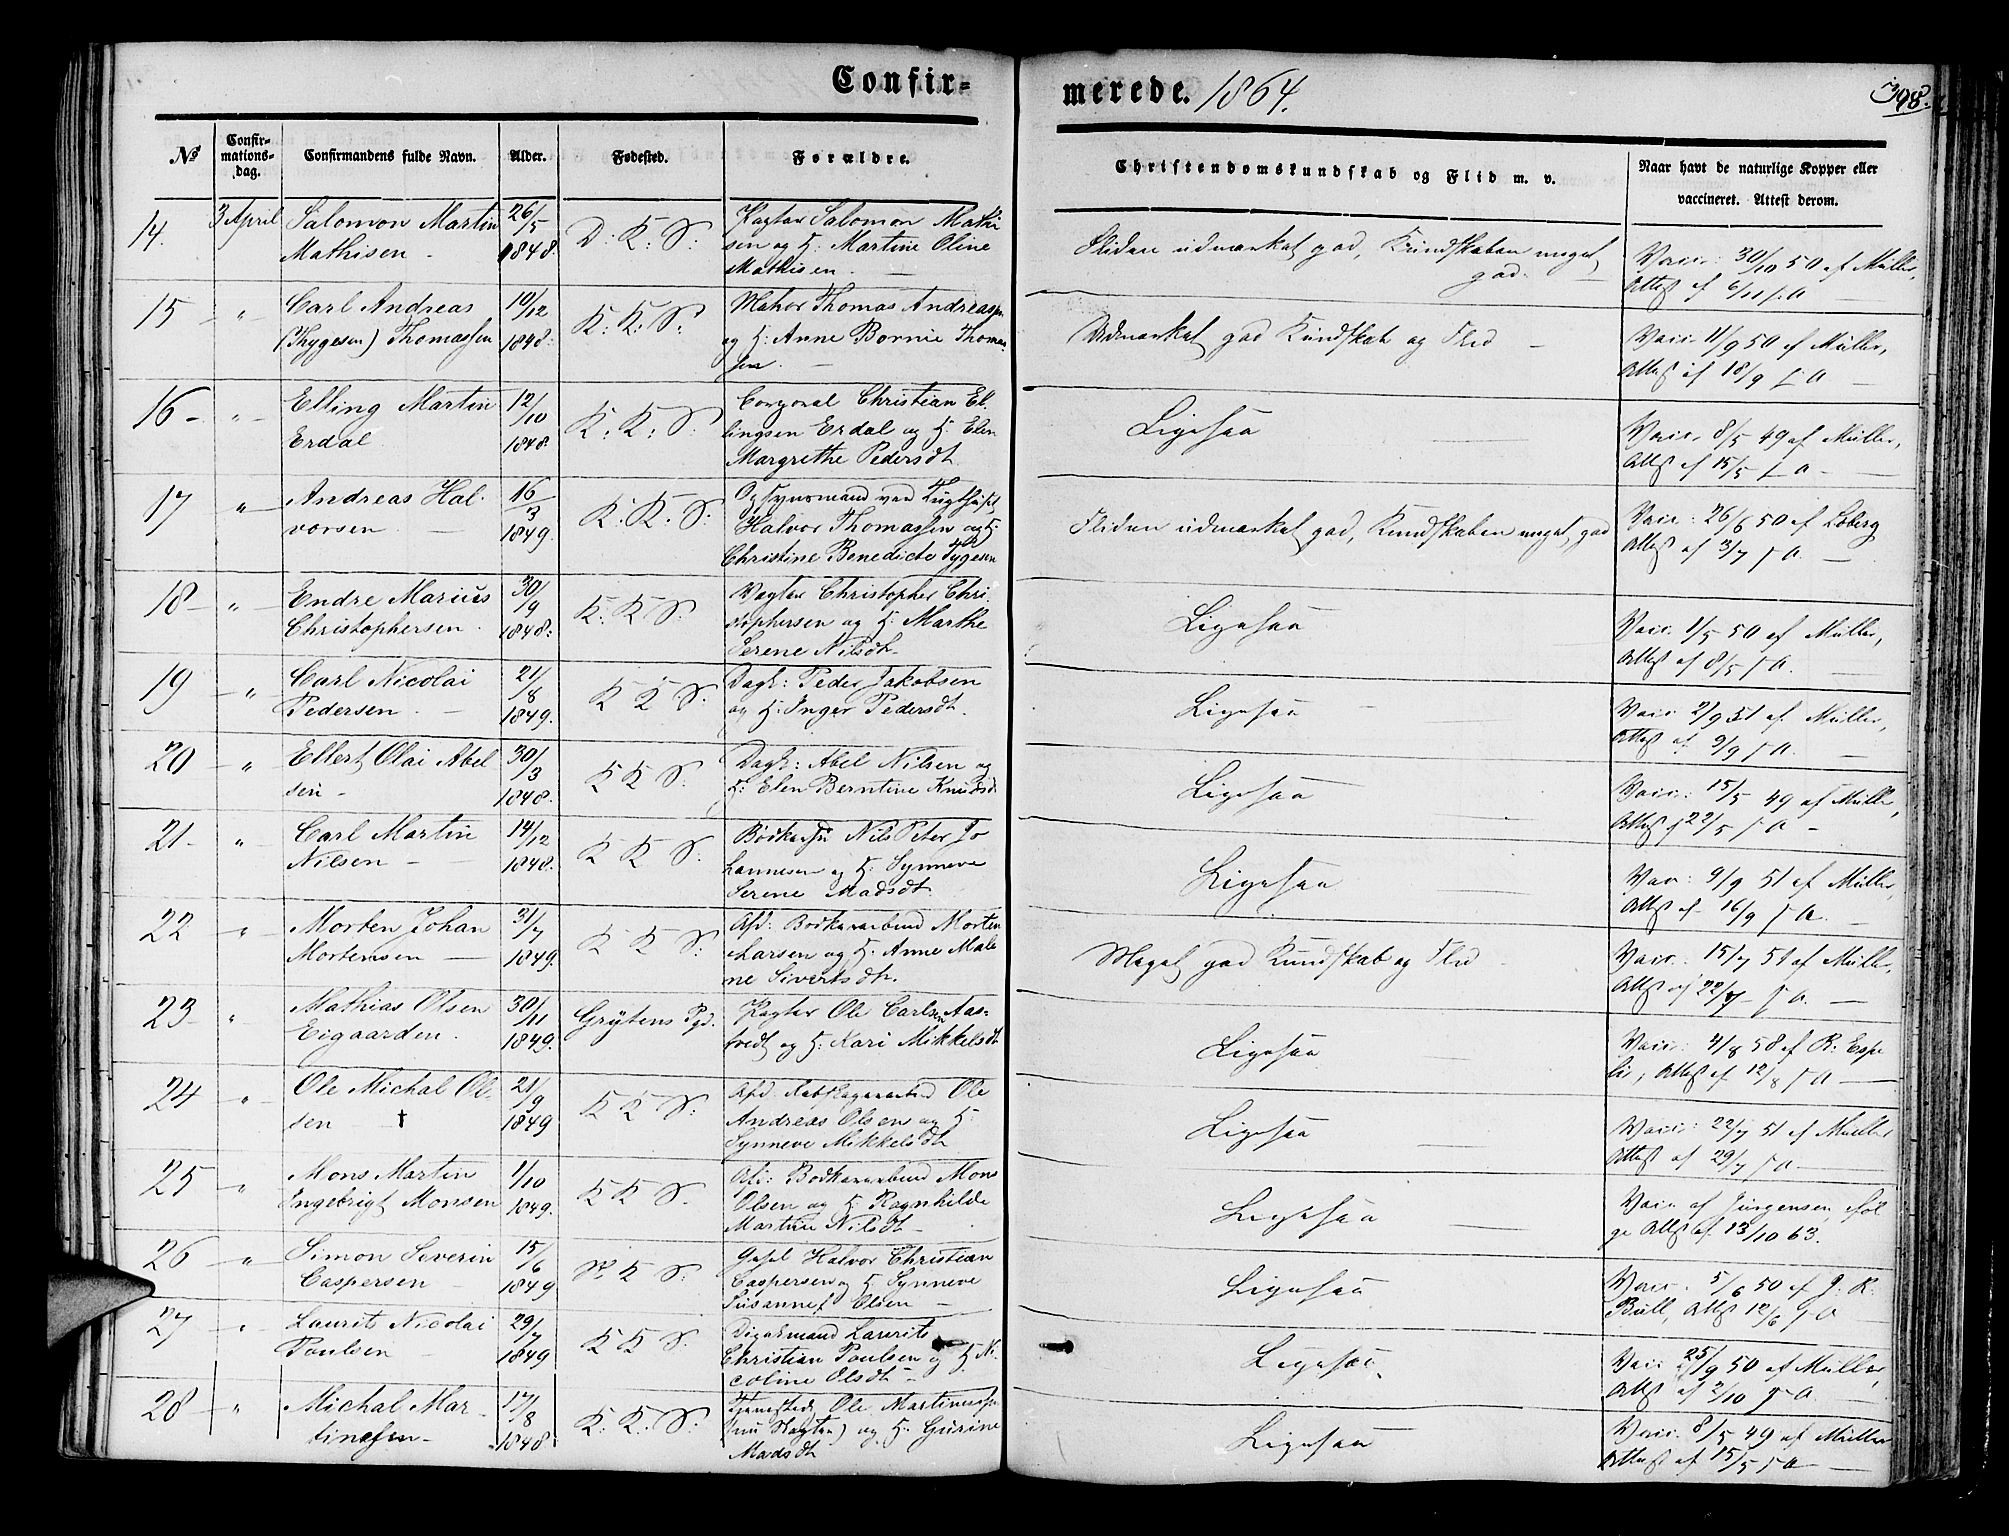 Confir-
merede. 1864.
398.
No
Confir-
mations-
dag.
Confirmandens fulde Navn.
Alder.
Fødested.
Forældre.
Christendomskundskab og Flid m. v.
Naar havt de naturlige Kopper eller
vaccineret. Attest derom.
14. 3 April Salomon Martin 26/5 D: K: S: Vagter Salomon Mathi
Mathisen - 1848. sen og H: Martine Oline
Mathisen. -
Fliden udmærket god, Kundskaben meget
god. -
Vacc: 30/10 50 af Müller,
Attest af 6/11 s. A -
15 - " - Carl Andreas 10/12 K: K: S: Thomas Andreassen
(Thygesen) Thomassen 1848. og H: Anne Thomas
sen. -
Udmærket god Kundskab og Flid -
Vacc. 11/9 50 af Müller,
Attest af 18/9 s A -
16 - " - Elling Martin 12/10 K: K: S: Corporal Christian El.
Erdal 1848. lingsen Erdal og H: Elen
Margrethe Pedersdt.
Ligesaa
Vacc. 8/5 49 af Müller,
Attest af 15/5 s A -
17 " Andreas Hal- 16/3 K: K: S: Opsynsmand ved Tugthuset
vorsen - 1849. Halvor Thomassen og H:
Christine Benedicte Tygesen
Fliden udmærket god, Kundskaben meget god
Vacc: 26/6 50 af Loberg
Attest af 3/7 s A -
18 - " - Endre Marius 30/9 K: K S: Vagter Christopher Chri-
Christophersen. 1848. stophersen og H: Marthe
Serene Nilsdt.
Ligesaa
Vacc. 1/5 50 af Müller,
Attest af 8/5 s A.
19 - " Carl Nicolai 21/8 K K S: Dagk: Peder Jakobsen
Pedersen. - 1849. og H: Inger Pedersdt.
Ligesaa -
Vacc 2/9 51 af Müller,
Attest af 9/9 s A. -
20 - " Ellert Olai Abel 30/3 K K S: Dagk: Abel Nilsen og
sen - 1848. H: Elen Berntine Knudsdt
Ligesaa
Vacc: 15/5 49 af Müller,
Attest af 22/5 s A -
21 - " - Carl Martin 14/12 K K S: Nils Peter Jo
Nilsen - 1848. hannesen og H: Synneve
Serene Madsdt.
Ligesaa
Vacc: 9/9 51 af Müller,
Attest af 16/9 s A.
22 - " - Morten Johan 31/7 K K S: Afd: Bødkerarbeid Morten
Mortensen - 1849. Larsen og H: Anne Male
ne Sivertsdt.
Meget god Kundskab og Flid -
Vacc. 15/7 51 af Müller,
Attest af 22/7 s A. -
23 - " Mathias Olsen 30/11 Grytens Pgd. Vagter Ole Carlsen Aas-
Eigaarden. 1849. tvedt og H: Kari Mikkelsdt
Ligesaa
Vacc: 4/8 58 af R: Espe
lie, Attest af 12/8 s A -
24 - " - Ole Michal Ol- 21/9 K K S: Afd: Ole
sen † 1849 Andreas Olsen og H:
Synneve Mikkelsdt
Ligesaa
Vacc: 22/7 51 af Müller
Attest af 29/7 s A. -
25 " Mons Martin 1/10 K K S: Afd: Bødkerarbeid Mons
Engebrigt Monsen 1849. Olsen og H: Ragnhilde
Martine Nilsdt -
Ligesaa
Vacc af Jürgensen, iføl
ge Attest af 13/10 63.
26 - " - Simon Severin 15/6 K S: Halvor Christian
Caspersen - 1849 Caspersen og H: Synneve
Susanne Olsen -
Ligesaa
Vacc. 5/6 50 af J. R:
Bull, Attest 12/6 s A
27 - " Laurits Nicolai 29/7 K K S: Laurits
Poulsen - 1849 Christian Poulsen og H Ni-
coline Olsdt -
Ligesaa.
Vacc 25/9 50 af Müller,
Attest af 2/10 s A. -
28 - " Michal Mar- 17/8 K: K: S: Ole Martinussen
tinessen - 1848 (nu Vagter) og H: Gurine
Madsdt
Ligesaa
Vacc. 8/5 49 af Müller
Attest af 15/5 s A -